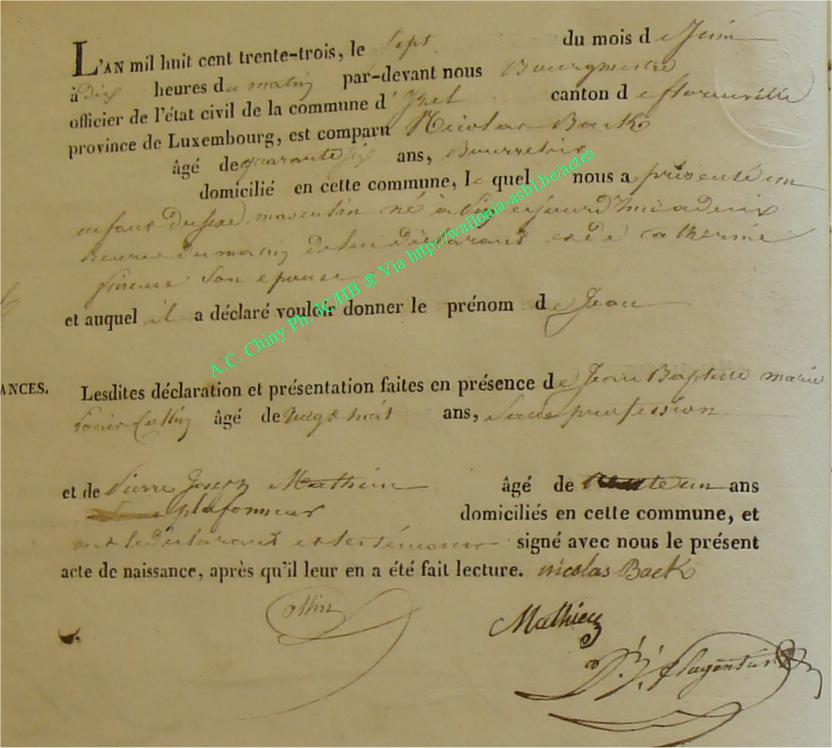 L'AN mil huit cent trente-trois, le sept du mois de Juin
à Dix heures du matin par-devant nous Bourgmestre
officier de l'état civil de la commune d' canton de florenville
province de Luxembourg, est comparu Nicolas Back
âgé de quarante six ans,
domicilié en cette commune, le quel nous a présenté un
enfant du sexe masculin né à aujourd'hui à deux
heures du matin de lui Déclarant et de catherine
son epouse
et auquel il a déclaré vouloir donner le prénom de Jean
ANCES. Lesdites déclaration et présentation faites en présence de Jean Baptiste marie
Collin âgé de vingt huit ans, Sans profession
et de Pierre Joseph Mathieu âgé de ans
plafonneur domiciliés en cette commune, et
ont le Déclarant et les témoins signé avec nous le présent
acte de naissance, après qu'il leur en a été fait lecture. nicolas Back
Collin
Mathieu
A.C. Chiny Ph. JC/HB ® Via http://wallonia-asbl.be/actes